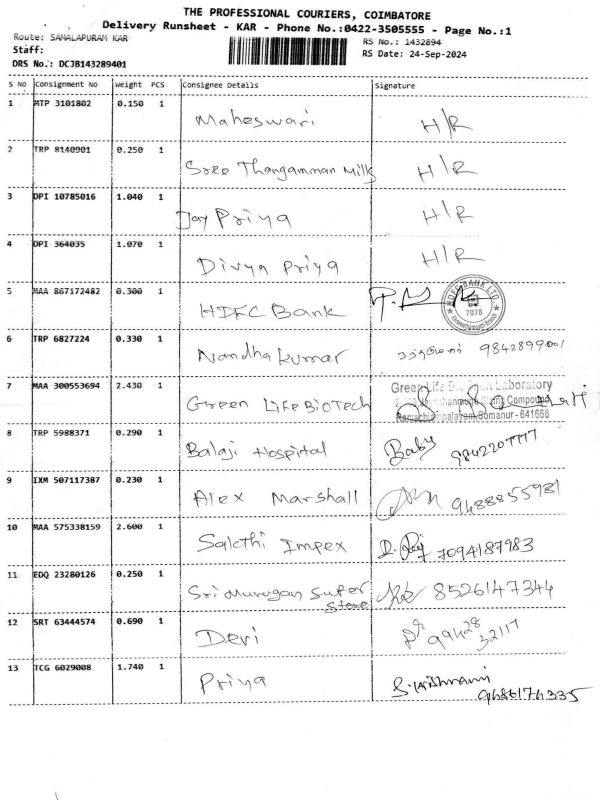 THE PROFESSIONAL COURIERS, COIMBATORE
Delivery Runsheet - KAR - Phone No.:0422-3505555 - Page No.:1
Route: SAMALAPURAM KAR
RS No.: 1432894
Staff:
RS Date: 24-Sep-2024
DRS No.: DCJB143289401
S No Consignment No Weight PCS Consignee Details Signature
1 MTP 3101802 0.150 1 Maheswari H/R
2 TRP 8140901 0.250 1 Sree Thangamman Mills H/R
3 DPI 10785016 1.040 1 Jay Priya H/R
4 DPI 364035 1.070 1 Divya Priya H/R
5 MAA 867172482 0.300 1 HDFC Bank HDFC BANK LTD. 7078
6 TRP 6827224 0.330 1 Nandha Kumar 9842899001
7 MAA 300553694 2.430 1 Green Life BioTech
Green Life Laboratory
Compound
Somanur - 641668
8 TRP 5988371 0.290 1 Balaji Hospital Baby 9842207777
9 IXM 507117387 0.230 1 Alex Marshall 9488855981
10 MAA 575338159 2.600 1 Sakthi Impex 7094187983
11 EDQ 23280126 0.250 1 Sri Murugan Super Store 8526147344
12 SRT 63444574 0.690 1 Devi
13 TCG 6029008 1.740 1 Priya